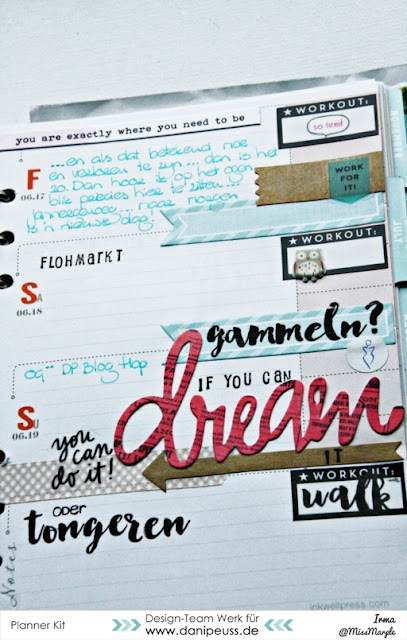 you are exactly where you need to be
★ WORKOUT:
so tired
F
06.17
...en als dat betekend moe
en verloren te zijn... dan is het
zo. Dan hoop ik op het ogen
blik precies hier te zitten...
naar morgen
is 'n nieuwe dag!
WORK
FOR
IT!
JULY
FLOHMARKT
★ WORKOUT:
SA
06.18
gammeln?
DP Blog Hop
IF YOU CAN
dream
IT
SU
06.19
you
can
do it!
★ WORKOUT:
walk
oder
tongeren
Notes
inkwellpress.com
Planner Kit
Design-Team Werk für
www.danipeuss.de
Irma
@MissMarple